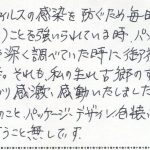 ウィルスの感染を防ぐため毎日
うことを強いられている時、パッ
を深く調べていた時に御社
。それも、私の生れ古郷のす
り感激、感動いたしました
のこと、パッケージ、デザイン、包装、
うこと無しです。